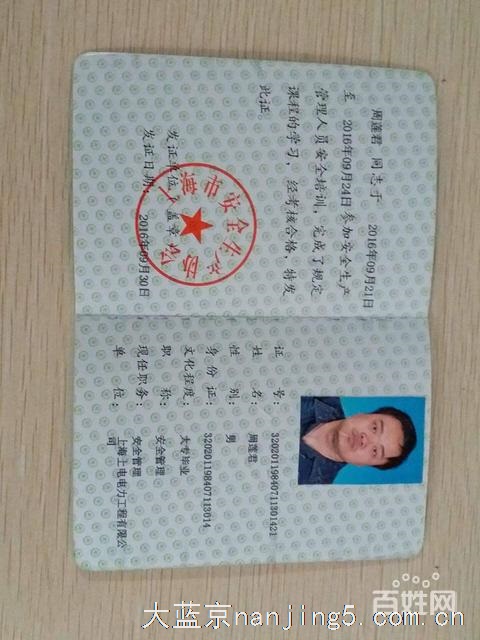 周莲君 同志于 2016年09月21日
至 2016年09月24日参加安全生产
管理人员安全培训，完成了规定
课程的学习，经考核合格，特发
此证。
发证单位（盖章）
发证日期： 2016年09月30日
海市安全生产
证 号： 32020119840711301421
姓 名： 周莲君
性 别： 男
身 份 证： 320201198407113014
文化程度： 大专毕业
职 称： 安全管理
现任职务： 安全管理
单 位： 上海上电电力工程有限公
司
百姓网
大蓝京nanjing5.com.cn